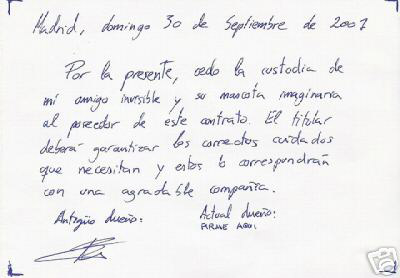 Madrid, domingo 30 de Septiembre de 2007
Por la presente, cedo la custodia de
mi amigo invisible y su mascota imaginaria
al poseedor de este contrato. El titular
deberá garantizar los correctos cuidados
que necesitan y estos le corresponderán
con una agradable compañía.
Antigüo dueño: Actual dueño:
FIRME AQUI
eb